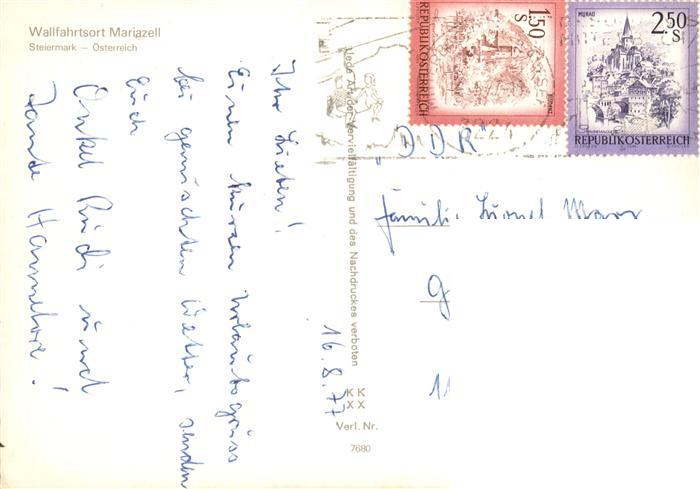 Wallfahrtsort Mariazell
Steiermark – Österreich
Ihr Lieben!
Einen kurzen Urlaubsgruss
bei gemischten Wetter, senden
Euch
Onkel Rudi und
Tante Hannelore!
16.8.77
Jede Art der Vervielfältigung und des Nachdruckes verboten
K K
X X
Verl. Nr.
7680
1.50
S
REPUBLIK ÖSTERREICH
MURAU
2.50
S
REPUBLIK ÖSTERREICH
"DDR"
Familie Lionel
G
11